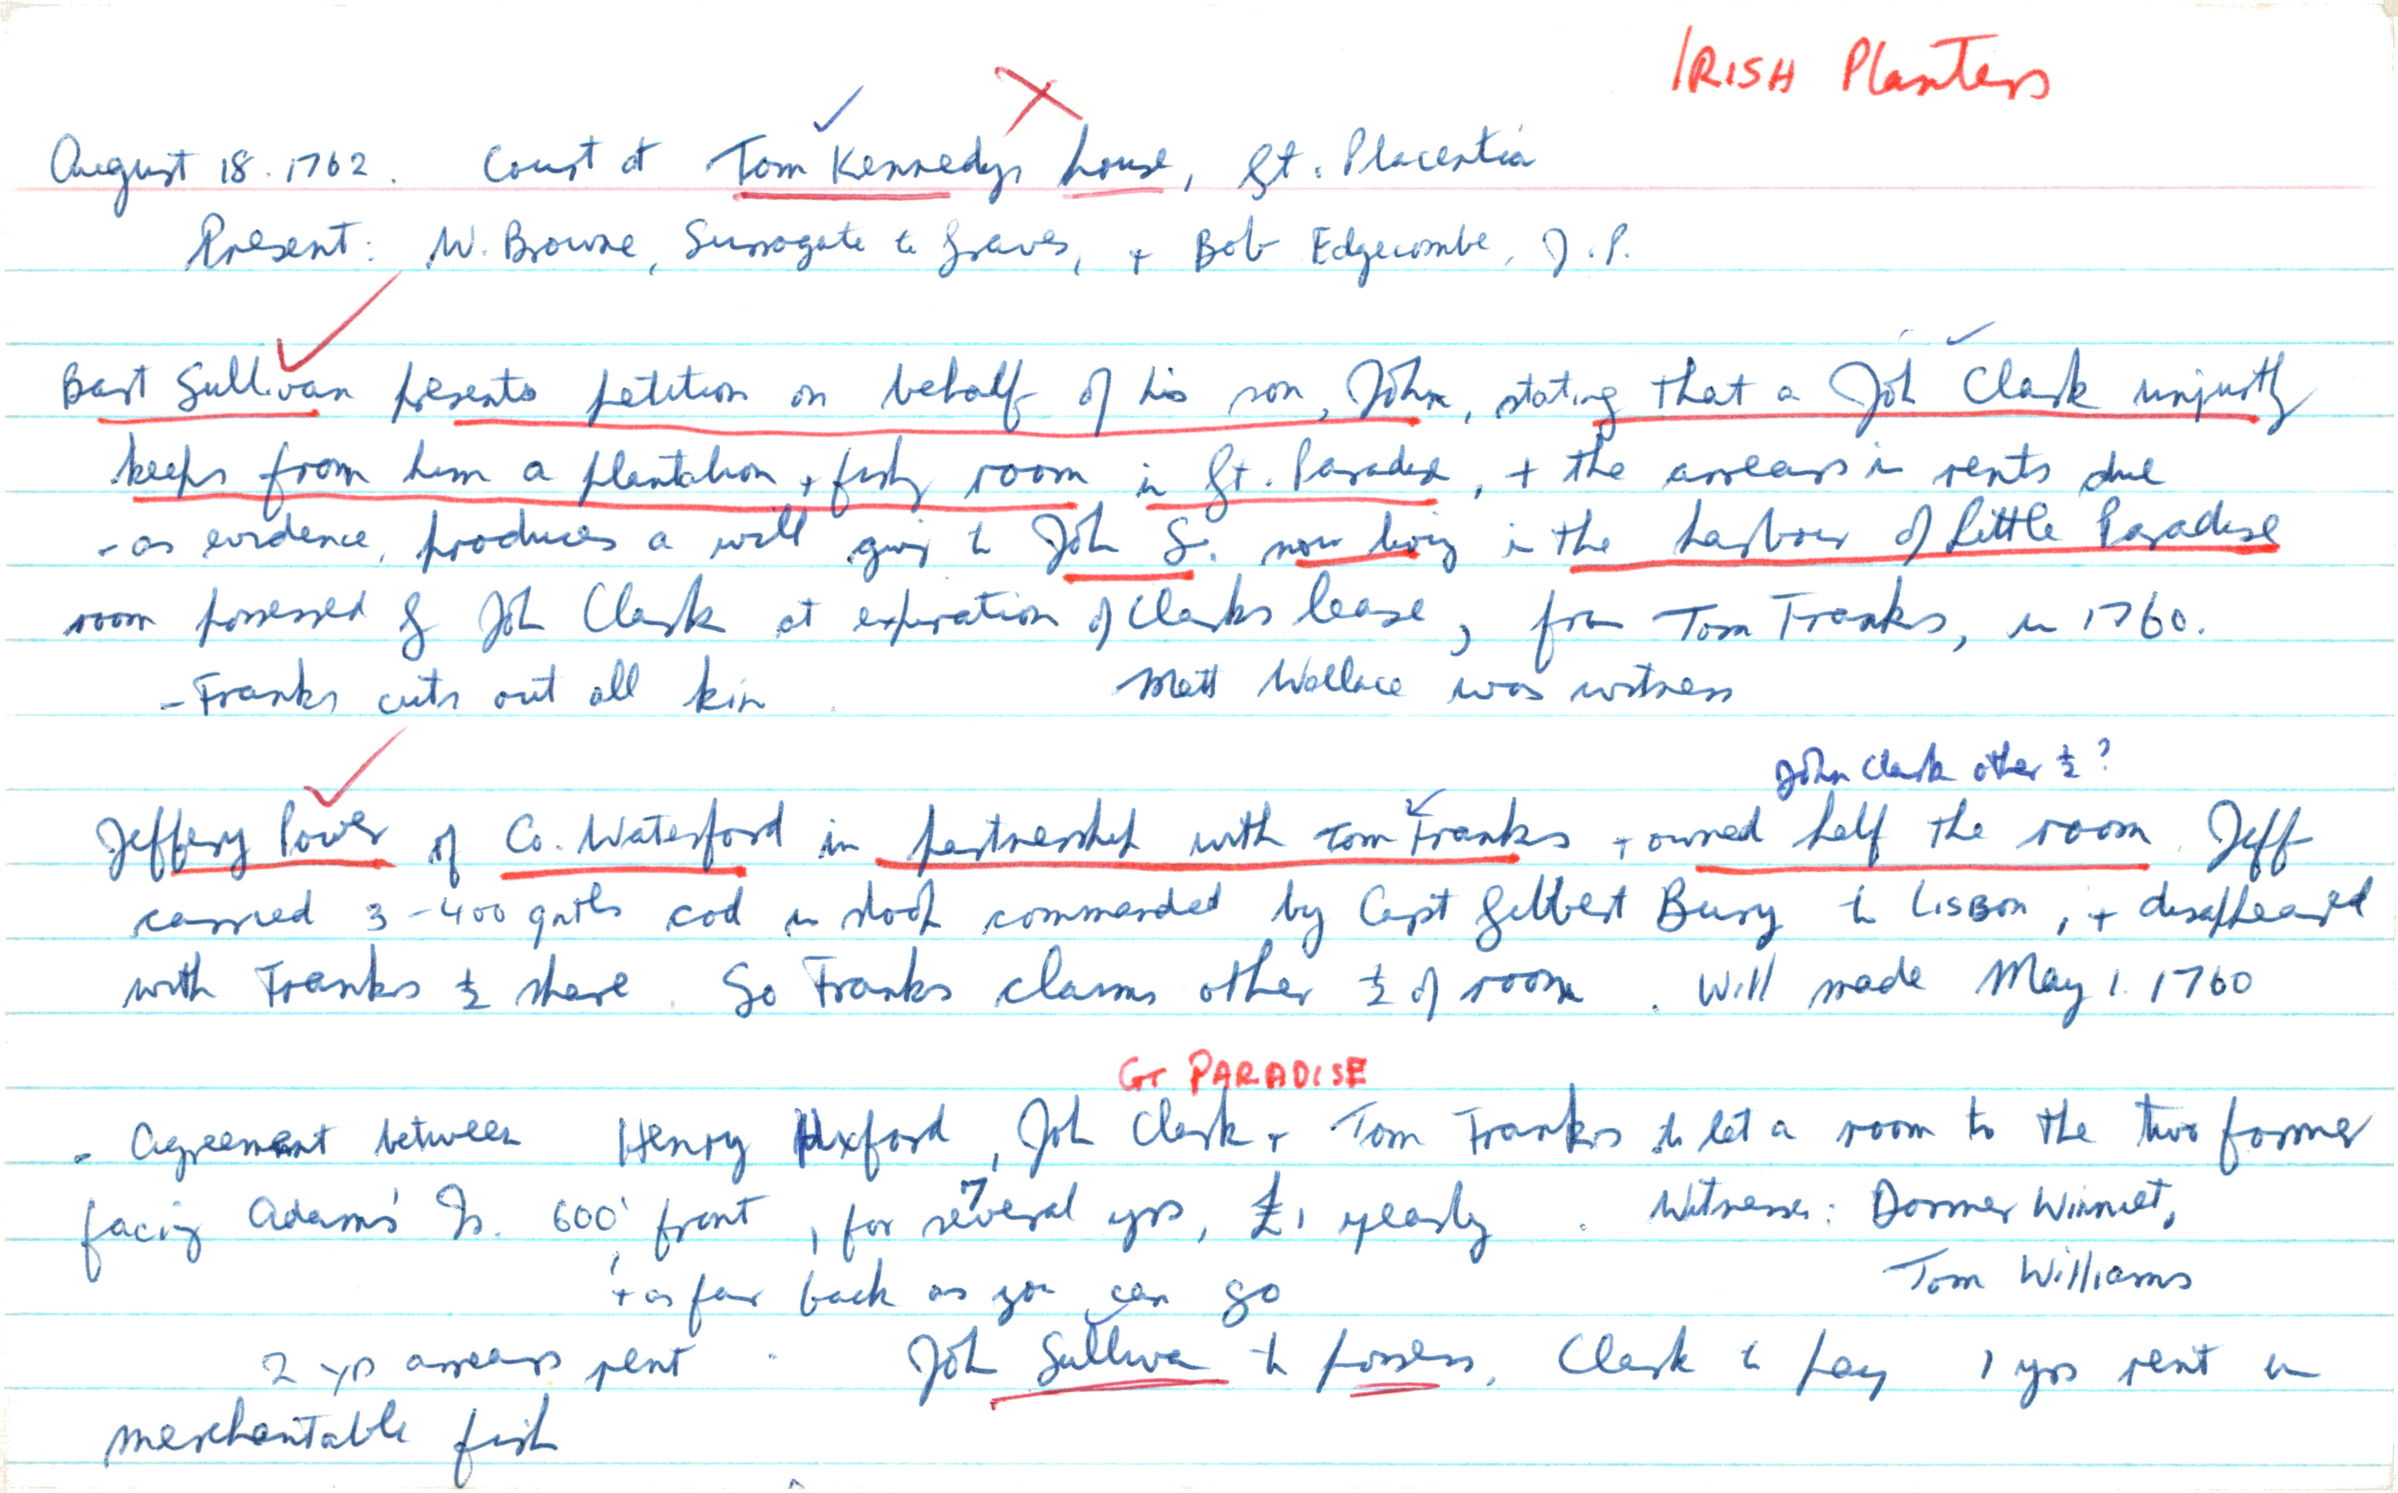 IRISH Planters
August 18. 1762. Court at Tom Kennedys house, Gt. Placentia
Present: W. Browne, Surrogate to Graves, + Bob Edgecombe, J.P.
Bart Sullivan presents petition on behalf of his son, John, stating that a Joh Clark unjustly
keeps from him a plantation + fishg room in Gt. Paradise, + the arrears in rents due
- as evidence, produces a will givg to Joh S. now livig in the harbour of Little Paradise
room possessed by Joh Clark at expiration of Clarks lease, from Tom Franks, in 1760.
- Franks cuts out all kin Matt Wallace was witness
John Clark other ½?
Jeffery Power of Co. Waterford in partnership with Tom Franks + owned half the room. Jeff
carried 3-400 qntls cod in sloop commanded by Capt Gilbert Bury to Lisbon, + disappeared
with Franks ½ share. So Franks claims other ½ of room. Will made May 1. 1760
GT PARADISE
- Agreement between Henry Huxford, Joh Clark + Tom Franks to let a room to the two former
facig Adams' Is. 600' front, for several yrs, £1 yearly. Witnesses: Dormer Winniet,
7
+ as far back as you can go Tom Williams
2 yrs arrears rent. Joh Sulliva to possess, Clark to pay 1 yrs rent in
merchantable fish